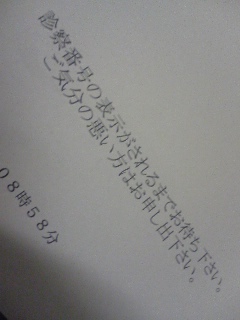 診察番号の表示がされるまでお待ち下さい。
ご気分の悪い方はお申し出下さい。
08時58分